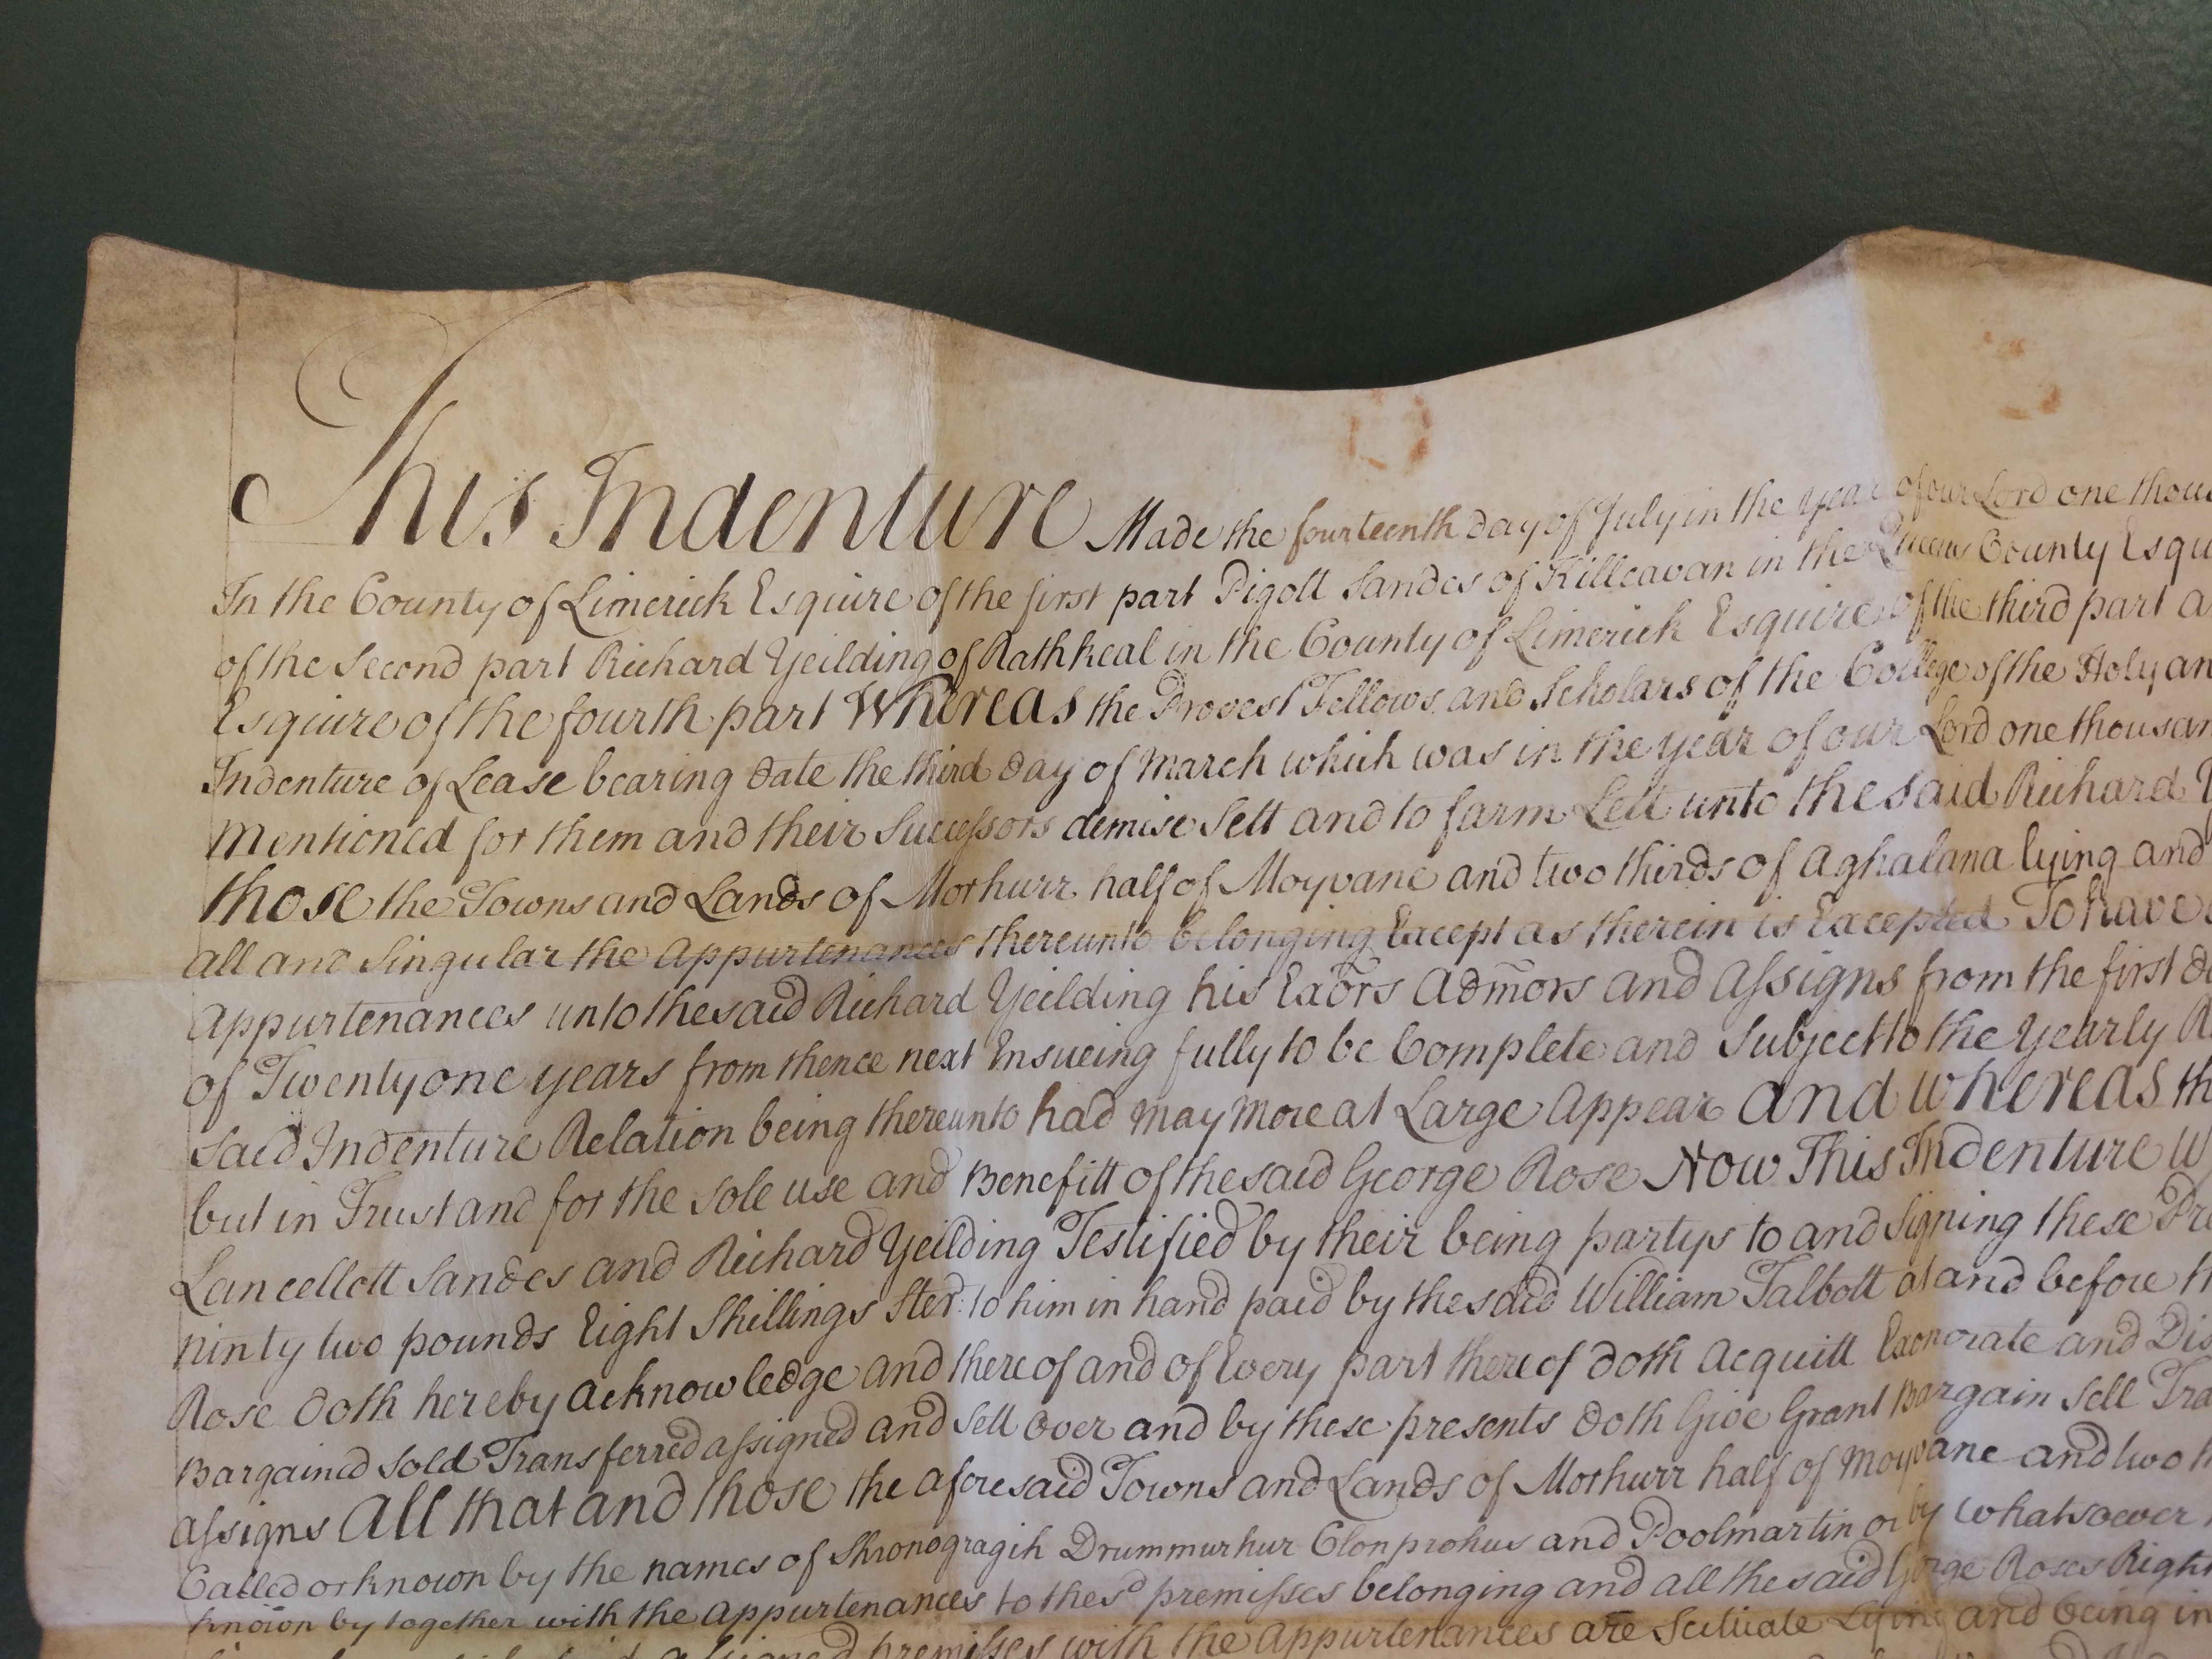 This Indenture Made the fourteenth day of July in the Year of our Lord one
In the County of Limerick Esquire of the first part Pigott Sandes of Killeavan in the Queens County
of the Second part Richard Yeilding of Rathkeal in the County of Limerick Esquire of the third part
Esquire of the fourth part Whereas the Provest Fellows and Scholars of the College of the Holy
Indenture of Lease bearing date the third day of March which was in the year of our Lord one
Mentioned for them and their Successors demise Sett and to farm Lett unto the said Richard
those the Towns and Lands of Morhurr half of Moyvane and two thirds of Aghalana lying and
all and Singular the Appurtenances thereunto belonging Except as therein is Excepted To have
Appurtenances unto the said Richard Yeilding his Exors Admors and Assigns from the first
of Twenty one years from thence next Ensueing fully to be Complete and Subject to the Yearly
said Indenture Relation being thereunto had may more at Large Appear And whereas
but in Trust and for the sole use and Benefitt of the said George Rose Now This Indenture
Lancellott Sandes and Richard Yeilding Testified by their being partys to and Signing these
ninty two pounds Eight Shillings Ster: to him in hand paid by the said William Talbott at and before
Rose doth hereby acknowledge and thereof and of Every part thereof doth Acquitt Exonorate and
Bargained Sold Transferred assigned and Sett over and by these presents doth Give Grant Bargain Sell
assigns All that and those the aforesaid Towns and Lands of Morhurr half of Moyvane and two
Called or known by the names of Shronogragih Drummurhur Clonprohus and Poolmartin or by whatsoever
known by together with the Appurtenances to the sd premisses belonging and all the said George Roses Right
premisses with the Appurtenances are Scituate Lying and being in